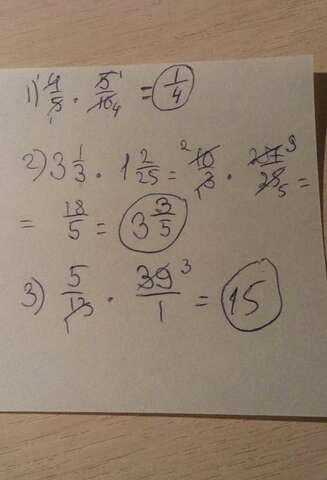 1) 4/5 · 5/16 = 1/4
2) 3 1/3 · 1 2/25 = 10/3 · 27/25 =
= 18/5 = 3 3/5
3) 5/13 · 39/1 = 15